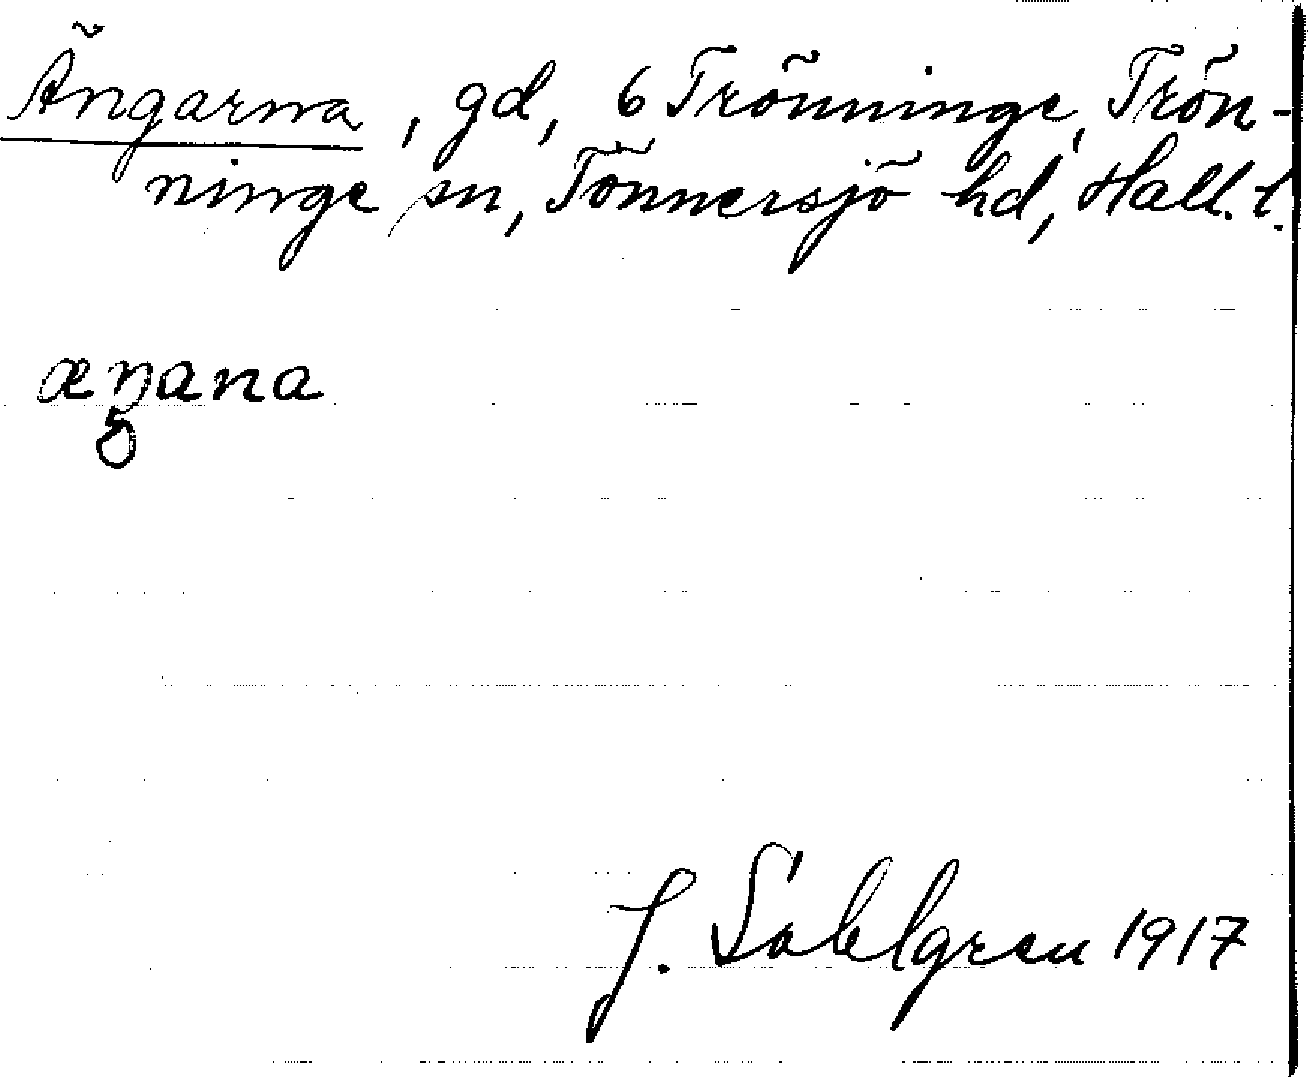 Ängarna, gd, 6 Trönninge, Trön-
ninge sn, Tönnersjö hd, Hall. l.
æŋana
J. Sahlgren 1917